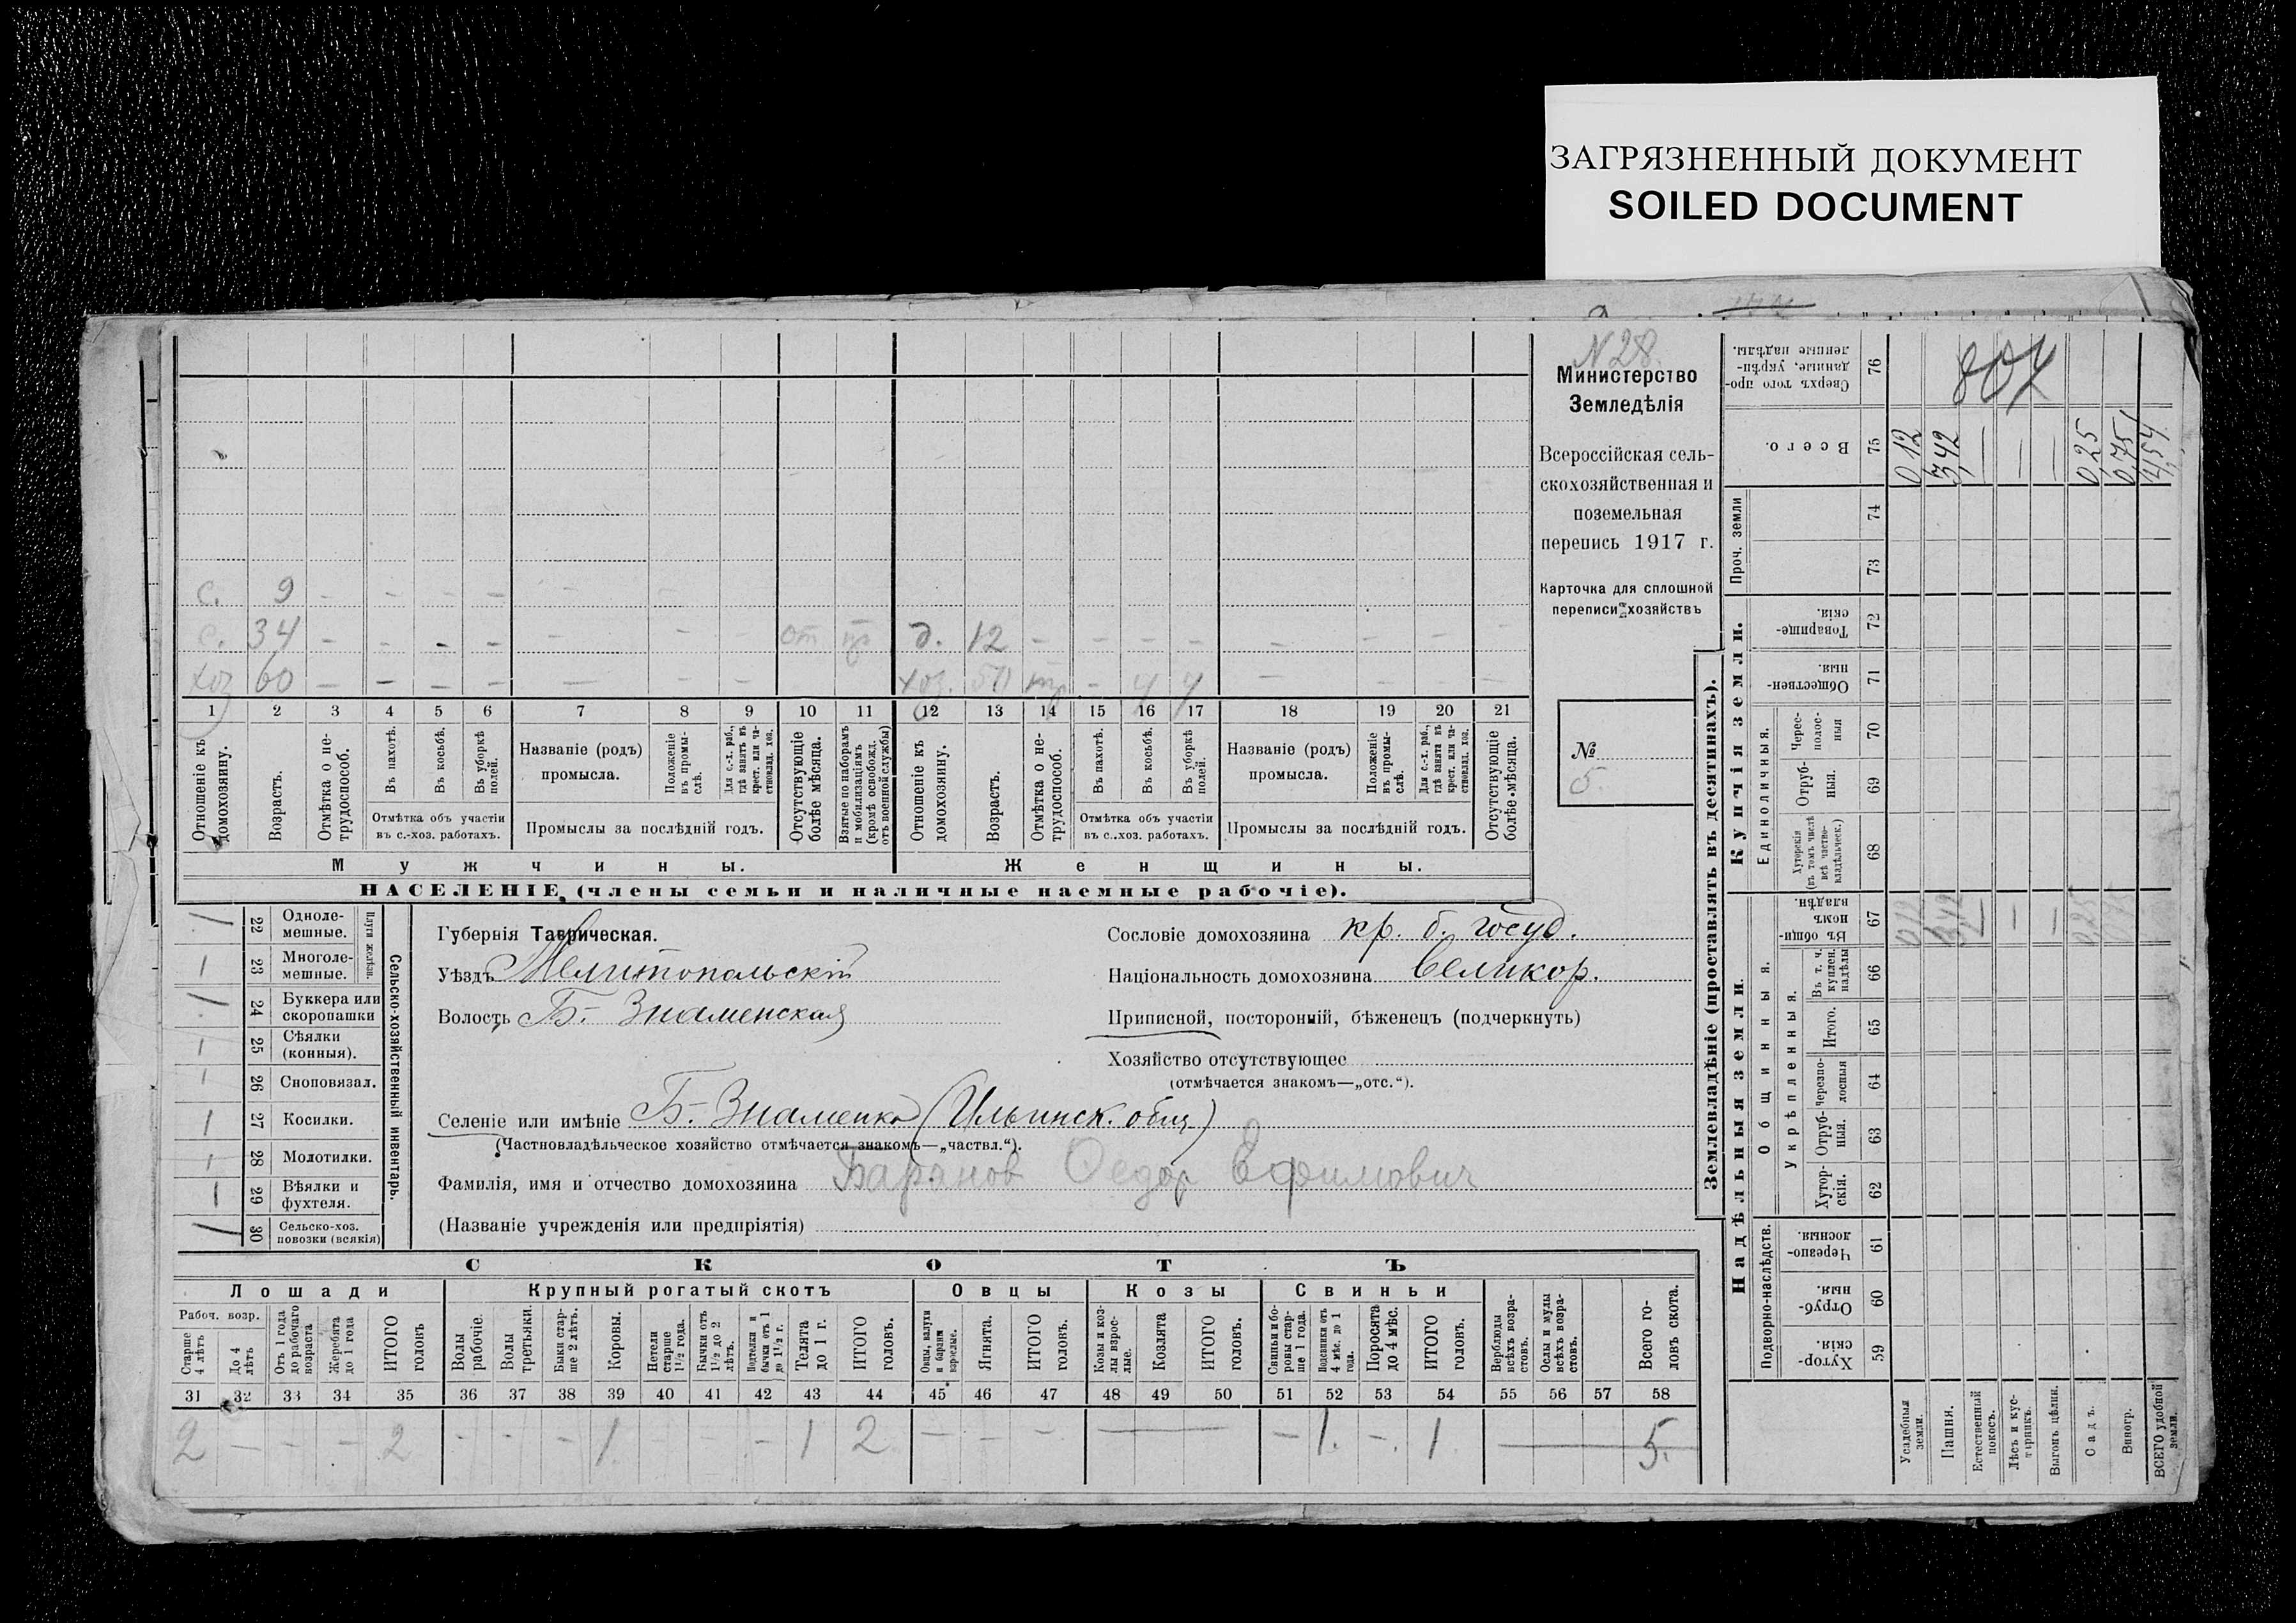 ЗАГРЯЗНЕННЫЙ ДОКУМЕНТ
SOILED DOCUMENT
N 28.
Министерство
Земледѣлія
Всероссійская сель-
скохозяйственная и
поземельная
перепись 1917 г.
Карточка для сплошной
переписи хозяйствъ
№
5.
с. 9 - - - - - - -
с. 34 - - - - - - - от д. 12 - - - - - - - -
хоз 60 - - - - - - - хоз. - 4 4 - - - -
1 2 3 4 5 6 7 8 9 10 11 12 13 14 15 16 17 18 19 20 21
Отношеніе къ домохозяину.
Возрастъ.
Отмѣтка о не-трудоспособ.
Въ пахотѣ.
Въ косьбѣ.
Въ уборкѣ полей.
Отмѣтка объ участіи
въ с.-хоз. работахъ.
Названіе (родъ)
промысла.
Положеніе въ промы-слѣ.
Для с.-х. раб., гдѣ занятъ въ крест. или ча-стновлад. хоз.
Промыслы за послѣдній годъ.
Отсутствующіе болѣе мѣсяца.
Взятые по наборамъ и мобилизаціямъ (кромѣ освобожд. отъ военной службы)
Отношеніе къ домохозяину.
Возрастъ.
Отмѣтка о не-трудоспособ.
Въ пахотѣ.
Въ косьбѣ.
Въ уборкѣ полей.
Отмѣтка объ участіи
въ с..хоз. работахъ.
Названіе (родъ)
промысла.
Положеніе въ промы-слѣ.
Для с.-х. раб., гдѣ занята въ крест. или ча-стновлад. хоз.
Промыслы за послѣдній годъ.
Отсутствующіе болѣе мѣсяца.
Мужчины.
Женщины.
НАСЕЛЕНІЕ (члены семьи и наличные наемные рабочіе).
Сельско-хозяйственный инвентарь.
Плуги желѣз.
22 Одноле-мешные.
23 Многоле-мешные.
24 Буккера или скоропашки
25 Сѣялки (конныя).
26 Сноповязал.
27 Косилки.
28 Молотилки.
29 Вѣялки и фухтеля.
30 Сельско-хоз. повозки (всякія)
Губернія Таврическая.
Уѣздъ Мелитопольскій
Волость Б.-Знаменская
Сословіе домохозяина кр. б. госуд.
Національность домохозяина великор.
Приписной, посторонній, бѣженецъ (подчеркнуть)
Хозяйство отсутствующее
(отмѣчается знакомъ—„отс.“).
Селеніе или имѣніе Б.-Знаменка (Ильинск. общ.)
(Частновладѣльческое хозяйство отмѣчается знакомъ—„частвл.“).
Фамилія, имя и отчество домохозяина Баранов Федор Ефимович
(Названіе учрежденія или предпріятія)
СКОТЪ
Лошади
Крупный рогатый скотъ
Овцы
Козы
Свиньи
Рабоч. возр.
Старше 4 лѣтъ
До 4 лѣтъ
Отъ 1 года до рабочаго возраста
Жеребята до 1 года
ИТОГО головъ
Волы рабочіе.
Волы третьяки.
Быки стар-ше 2 лѣтъ.
Коровы.
Нетели старше 1½ года.
Бычки отъ 1½ до 2 лѣтъ.
Подтелки и бычки отъ 1 до 1½ г.
Телята до 1 г.
ИТОГО головъ.
Овцы, валухи и бараны взрослые.
Ягнята.
ИТОГО головъ.
Козы и коз-лы взрос-лые.
Козлята
ИТОГО головъ.
Свиньи и бо-ровы стар-ше 1 года.
Подсвинки отъ 4 мѣс. до 1 года.
Поросята до 4 мѣс.
ИТОГО головъ.
Верблюды всѣхъ возра-стовъ.
Ослы и мулы всѣхъ возра-стовъ.
Всего го-ловъ скота.
31 32 33 34 35 36 37 38 39 40 41 42 43 44 45 46 47 48 49 50 51 52 53 54 55 56 57 58
2 - - - 2 - - - 1 - - - 1 2 - - - — - 1. - 1 — 5.
Землевладѣніе (проставлять въ десятинахъ).
Надѣльныя земли.
Купчія земли.
Проч. земли
Подворно-наслѣдств.
Общинныя.
Укрѣпленныя.
Единоличныя.
Хутор-скія. 59
Отруб-ныя. 60
Черезпо-лосныя. 61
Хутор-скія. 62
Отруб-ныя. 63
Черезпо-лосныя 64
Итого. 65
Въ т. ч. куплен. надѣлы 66
Въ общи-номъ владѣн. 67
Хуторскія (въ томъ числѣ всѣ частно-владѣльческ.) 68
Отруб-ныя. 69
Черес-полос-ныя 70
Обществен-ныя 71
Товарище-скія. 72
73
74
Всего. 75
Сверхъ того про-данные, укрѣп-ленные надѣлы. 76
Усадебныя земли. 012 012
Пашня. 3,42 3,42
Естественный покосъ.
Лѣсъ и кус-тарникъ.
Выгонъ цѣлин.
Садъ. 025 0,25
Виногр. 0,75
ВСЕГО удобной земли. 4,54
804